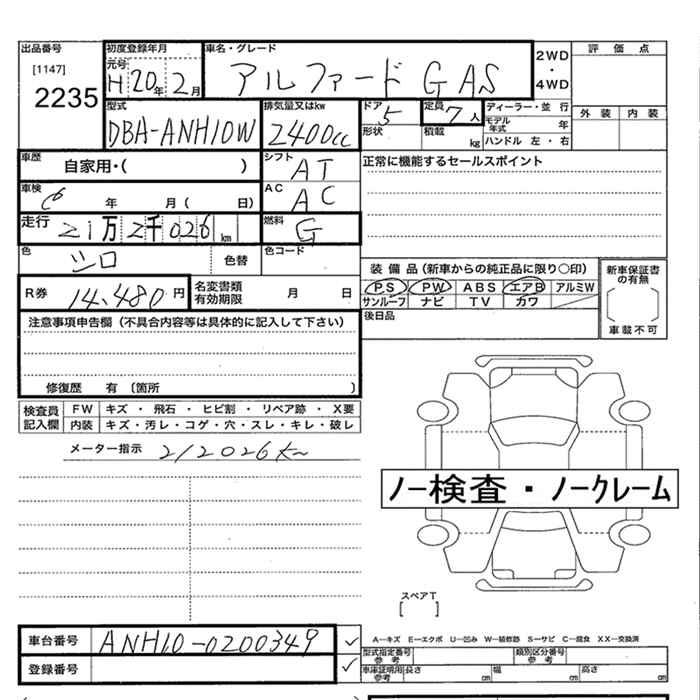 出品番号 初度登録年月 車名・グレード 2WD ・ 4WD 評価点
[1147] 元号 H20年2月 アルファード G AS
2235 外装 内装
型式 排気量又はkw ドア 5 定員 7人 ディーラー・並行
DBA-ANH10W 2400cc モデル年式 年
形状 積載 kg ハンドル 左・右
車歴 自家用・( ) シフト AT 正常に機能するセールスポイント
車検 年 月 ( 日) AC AC
走行 21万2千026km 燃料 G
色 シロ 色替 色コード
装備品(新車からの純正品に限り○印) 新車保証書の有無
R券 14,480円 名変書類有効期限 月 日 PS PW ABS エアB アルミW
サンルーフ ナビ TV カワ
注意事項申告欄(不具合内容等は具体的に記入して下さい) 後日品 車載不可
修復歴 有 〔箇所 〕
検査員記入欄 FW キズ・飛石・ヒビ割・リペア跡・X要
内装 キズ・汚レ・コゲ・穴・スレ・キレ・破レ
メーター指示 212026km
ノー検査・ノークレーム
スペアT
[ ]
車台番号 ANH10-0200349 ✓
A―キズ E―エクボ U―凹み W―補修跡 S―サビ C―腐食 XX―交換済
登録番号 ✓
型式指定番号 参考 類別区分番号 参考
車庫証明用 参考 長さ cm 幅 cm 高さ cm